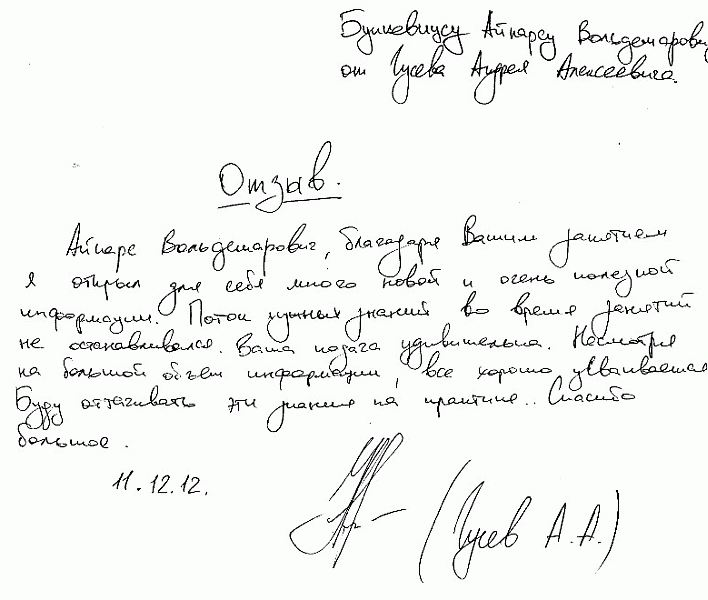 Бункевичусу Айнарсу Вольдемарович
от Гусева Андрея Алексеевича.
Отзыв.
Айнарс Вольдемарович, благодаря Вашим занятием
я открыл для себя много новой и очень полезной
информации. Поток нужных знаний во время занятий
не останавливался. Ваша подача удивительна. Несмотря
на большой объем информации, все хорошо усваивается
Буду оттачивать эти знания на практике.. Спасибо
большое.
11.12.12.
(Гусев А.А.)